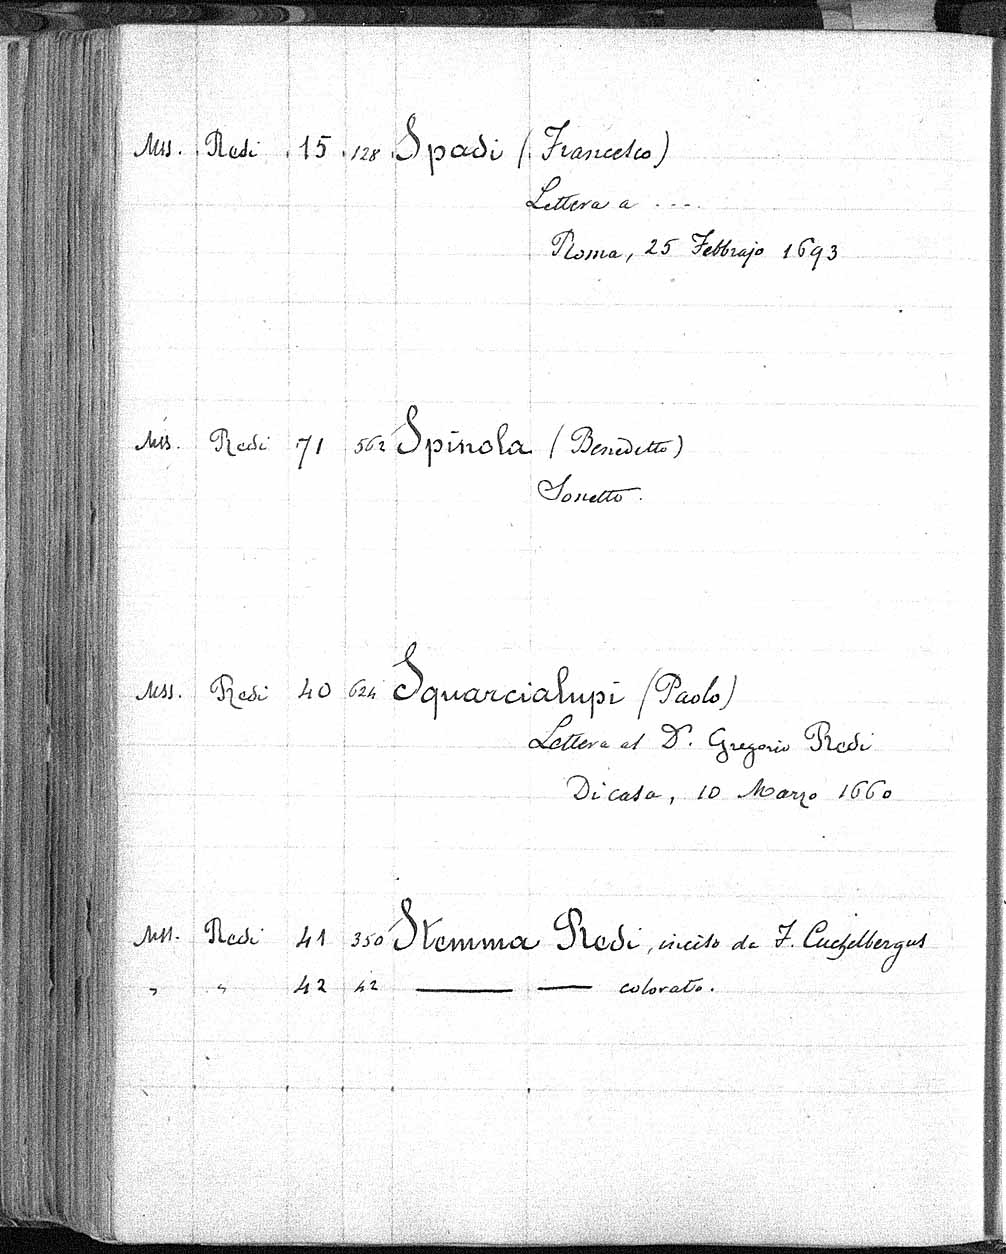 Mss. Redi 15 128 Spadi (Francesco)
Lettera a ....
Roma, 25 Febbrajo 1693
Mss. Redi 71 562 Spinola (Benedetto)
Sonetto.
Mss. Redi 40 624 Squarcialupi (Paolo)
Lettera al Dr. Gregorio Redi
Di casa, 10 Marzo 1660
Mss. Redi 41 350 Stemma Redi, inciso da F.
" " 42 42 —— —— colorato.